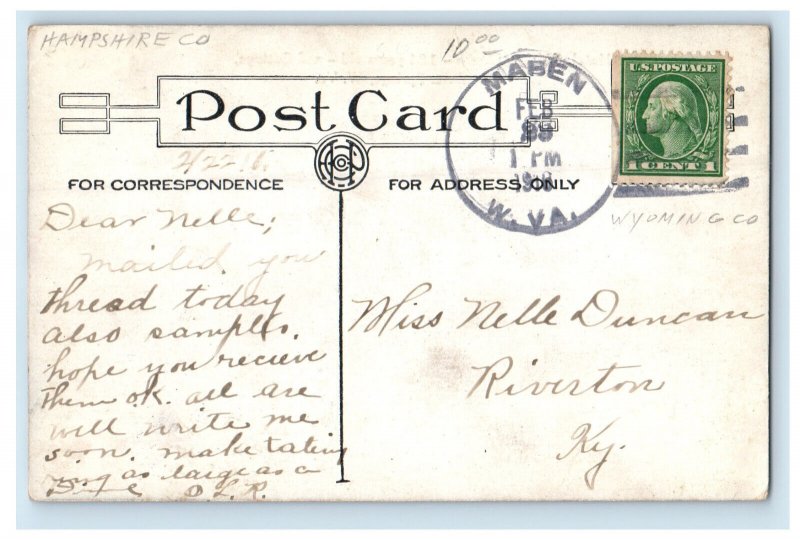 HAMPSHIRE CO
10 00
MABEN
FEB
1 PM
W. VA.
U.S. POSTAGE
1 CENT 1
Post Card
2/22
FOR CORRESPONDENCE
FOR ADDRESS ONLY
WYOMING CO
Dear Nelle;
mailed you
thread today
also samples.
hope you recieve
them ok. all are
well write me
soon. make
as large as a
D.L.R.
Miss Nelle Duncan
Riverton
Ky.